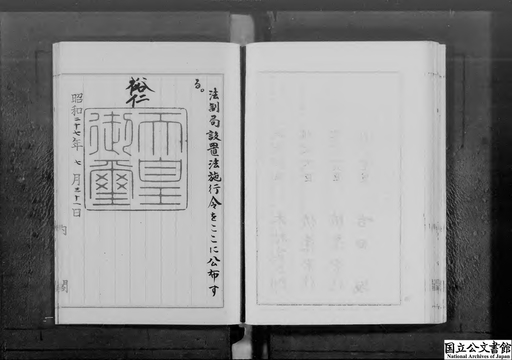 法制局設置法施行令をここに公布す
る。
裕仁
天皇
御璽
昭和二十七年七月三十一日
内閣
国立公文書館
National Archives of Japan